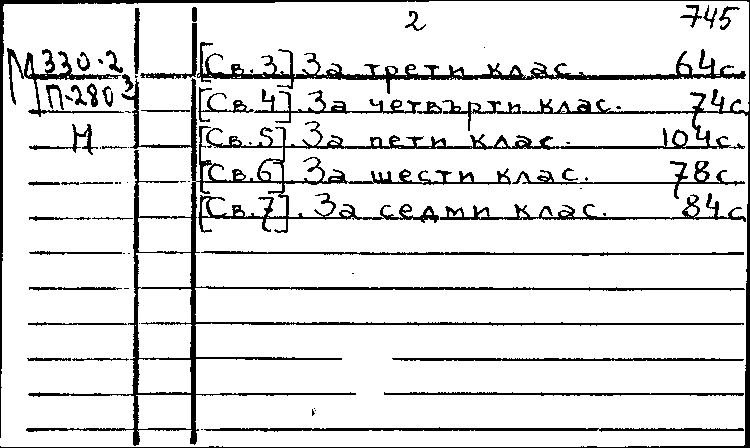 2 745
М 330.2 [Св.3] За трети клас. 64с.
П-280³ [Св.4]. За четвърти клас. 74с.
М [Св.5]. За пети клас. 104с.
[Св.6]. За шести клас. 78с.
[Св.7]. За седми клас. 84с.